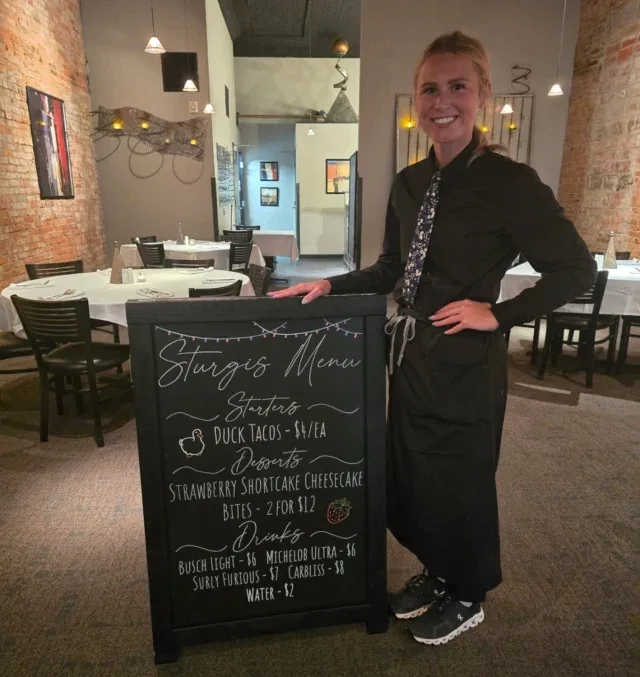 Sturgis Menu
Starters
DUCK TACOS - $4/EA
Desserts
STRAWBERRY SHORTCAKE CHEESECAKE
BITES - 2 FOR $12
Drinks
BUSCH LIGHT - $6 MICHELOB ULTRA - $6
SURLY FURIOUS - $7 CARBLISS - $8
WATER - $2